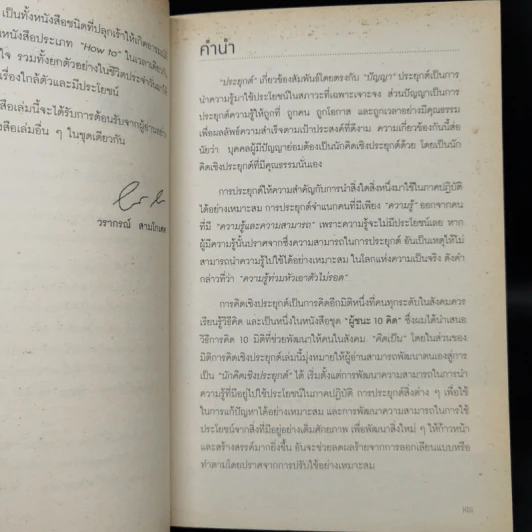 เป็นทั้งหนังสือชนิดที่ปลุกเร้าให้เกิด
หนังสือประเภท "How to" ในเวลาเดียวกัน
ใจ รวมทั้งยกตัวอย่างในชีวิตประจำวัน
เรื่องใกล้ตัวและมีประโยชน์
สือเล่มนี้จะได้รับการต้อนรับจากผู้อ่าน
สือเล่มอื่น ๆ ในชุดเดียวกัน
วรากรณ์ สามโกเศศ
คำนำ
"ประยุกต์" เกี่ยวข้องสัมพันธ์โดยตรงกับ "ปัญญา" ประยุกต์เป็นการ
นำความรู้มาใช้ประโยชน์ในสภาวะที่เฉพาะเจาะจง ส่วนปัญญาเป็นการ
ประยุกต์ความรู้ให้ถูกที่ ถูกคน ถูกโอกาส และถูกเวลาอย่างมีคุณธรรม
เพื่อผลลัพธ์ความสำเร็จตามเป้าประสงค์ที่ดีงาม ความเกี่ยวข้องกันนี้ส่อ
นัยว่า บุคคลผู้มีปัญญาย่อมต้องเป็นนักคิดเชิงประยุกต์ด้วย โดยเป็นนัก
คิดเชิงประยุกต์ที่มีคุณธรรมนั่นเอง
การประยุกต์ให้ความสำคัญกับการนำสิ่งใดสิ่งหนึ่งมาใช้ในภาคปฏิบัติ
ได้อย่างเหมาะสม การประยุกต์จำแนกคนที่มีเพียง "ความรู้" ออกจากคน
ที่มี "ความรู้และความสามารถ" เพราะความรู้จะไม่มีประโยชน์เลย หาก
ผู้มีความรู้นั้นปราศจากซึ่งความสามารถในการประยุกต์ อันเป็นเหตุให้ไม่
สามารถนำความรู้ไปใช้ได้อย่างเหมาะสม ในโลกแห่งความเป็นจริง ดังคำ
กล่าวที่ว่า "ความรู้ท่วมหัวเอาตัวไม่รอด"
การคิดเชิงประยุกต์เป็นการคิดอีกมิติหนึ่งที่คนทุกระดับในสังคมควร
เรียนรู้วิธีคิด และเป็นหนึ่งในหนังสือชุด "ผู้ชนะ 10 คิด" ซึ่งผมได้นำเสนอ
วิธีการคิด 10 มิติที่ช่วยพัฒนาให้คนในสังคม "คิดเป็น" โดยในส่วนของ
มิติการคิดเชิงประยุกต์เล่มนี้มุ่งหมายให้ผู้อ่านสามารถพัฒนาตนเองสู่การ
เป็น "นักคิดเชิงประยุกต์" ได้ เริ่มตั้งแต่การพัฒนาความสามารถในการนำ
ความรู้ที่มีอยู่ไปใช้ประโยชน์ในภาคปฏิบัติ การประยุกต์สิ่งต่าง ๆ เพื่อใช้
ในการแก้ปัญหาได้อย่างเหมาะสม และการพัฒนาความสามารถในการใช้
ประโยชน์จากสิ่งที่มีอยู่อย่างเต็มศักยภาพ เพื่อพัฒนาสิ่งใหม่ ๆ ให้ก้าวหน้า
และสร้างสรรค์มากยิ่งขึ้น อันจะช่วยลดผลร้ายจากการลอกเลียนแบบหรือ
ทำตามโดยปราศจากการปรับใช้อย่างเหมาะสม